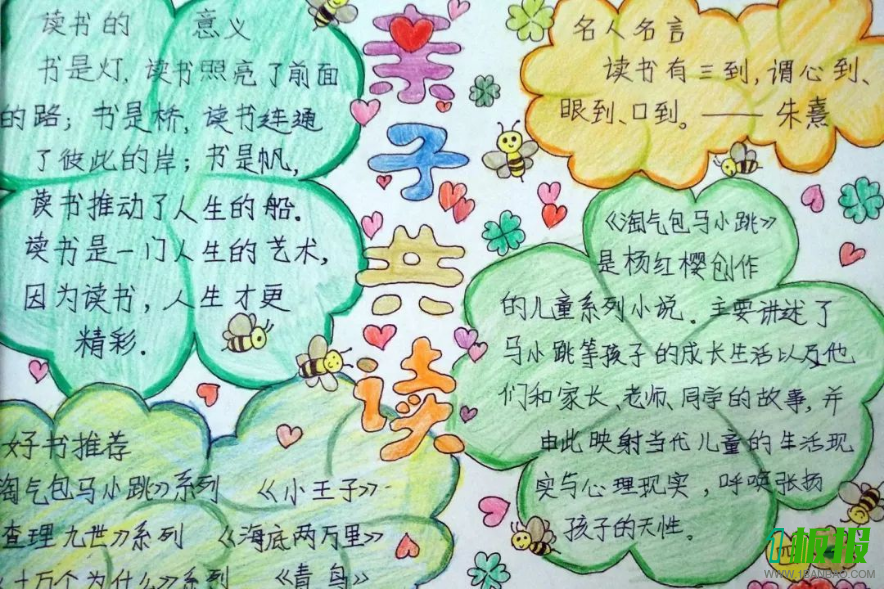 读书的 意义
书是灯,读书照亮了前面
的路;书是桥,读书连通
了彼此的岸;书是帆,
读书推动了人生的船.
读书是一门人生的艺术,
因为读书,人生才更
精彩.
亲
子
共
读
名人名言
读书有三到,谓心到、
眼到、口到。——朱熹
《淘气包马小跳》
是杨红樱创作
的儿童系列小说.主要讲述了
马小跳等孩子的成长生活以及他
们和家长、老师、同学的故事,并
由此映射当代儿童的生活现
实与心理现实,呼唤张扬
孩子的天性。
好书推荐
淘气包马小跳》系列 《小王子》
查理九世》系列 《海底两万里》
《十万个为什么》系列 《青鸟》
板报
WWW.1BANBAO.COM